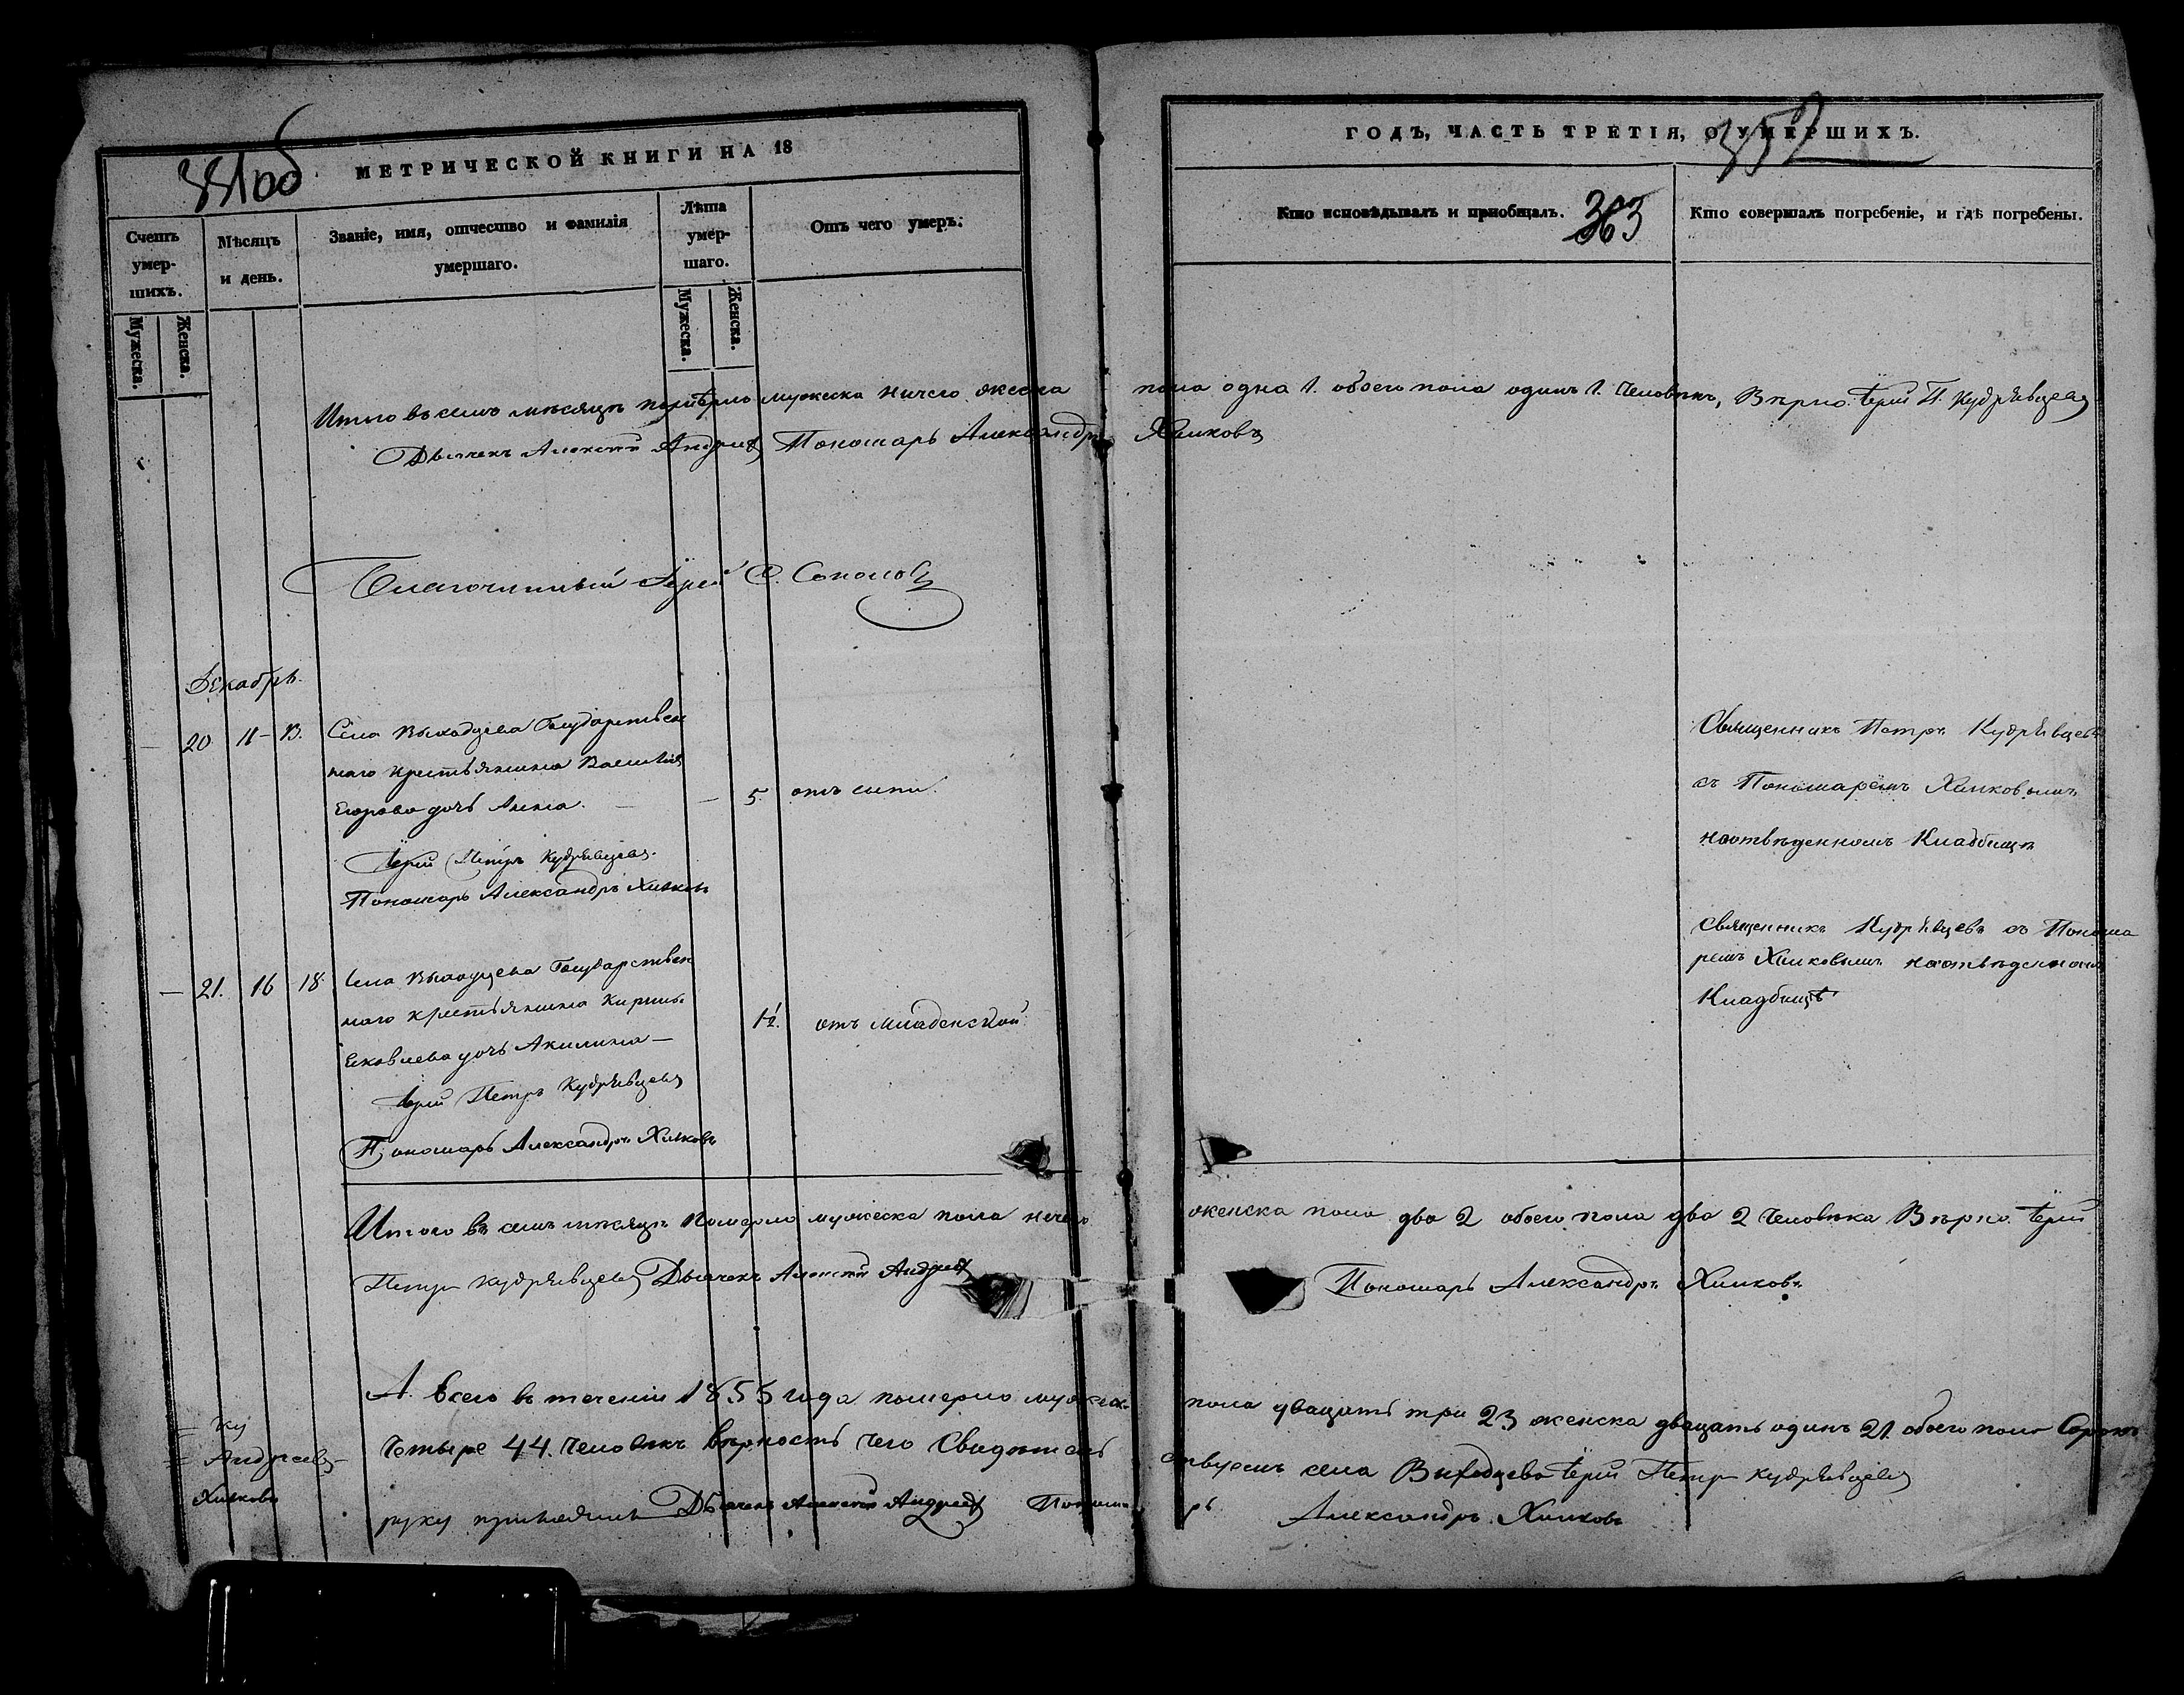 351об
МЕТРИЧЕСКОЙ КНИГИ НА 18
Счетъ умер-шихъ.
Мѣсяцъ и день.
Званіе, имя, отчество и фамилія умершаго.
Лѣта умер-шаго.
Отъ чего умеръ.
Мужеска.
Женска.
Мужеска.
Женска.
ГОДЪ, ЧАСТЬ ТРЕТІЯ, О УМЕРШИХЪ.
352
Кто исповѣдывалъ и пріобщалъ.
363
Кто совершалъ погребеніе, и гдѣ погребены.
Итого въ семъ мѣсяцѣ померло мужеска ничего женска пола одна 1. обоего пола одинъ 1. Человѣкъ, Вѣрно. Іерей П. Кудрявцевъ
Дьячекъ Алексѣй Андреевъ Пономарь Александръ Хилковъ
Благочинный Іерей Соколовъ
Декабрь.
— 20 11 – 13. Села Выходцева Государствен
наго крестьянина Василія
Егорова дочь Анна. — — 5. отъ сыпи.
Іерей Петръ Кудрявцевъ.
Пономарь Александръ Хилковъ
Священникъ Петръ Кудрявцевъ
съ Пономаремъ Хилковымъ
на отвѣденномъ Кладбищѣ
— 21. 16 18 Села Выходцева Государствен
наго крестьянина Кирилы
Яковлева дочь Акилина — 1½. отъ младенской
Іерей Петръ Кудрявцевъ
Пономарь Александръ Хилковъ
Священникъ Кудрявцевъ съ Понома
ремъ Хилковымъ на отвѣденномъ
Кладбищѣ
Итого въ семъ мѣсяцѣ померло мужеска пола ничего женска пола два 2 обоего пола два 2 Человѣка Вѣрно. Іерей
Петръ Кудрявцевъ Дьячекъ Алексѣй Андреевъ Пономарь Александръ Хилковъ
А всего въ теченіи 1855 года померло мужеска пола двацать три 23 женска двацать одинъ 21. обоего пола Сорокъ
Четыре 44. Человѣкъ вѣрность чего Свидѣтельствуемъ села Выходцева Іерей Петръ Кудрявцевъ
руку приложили Дьячекъ Алексѣй Андреевъ Пономарь Александръ Хилковъ
Ку
Андреевъ
Хилковъ